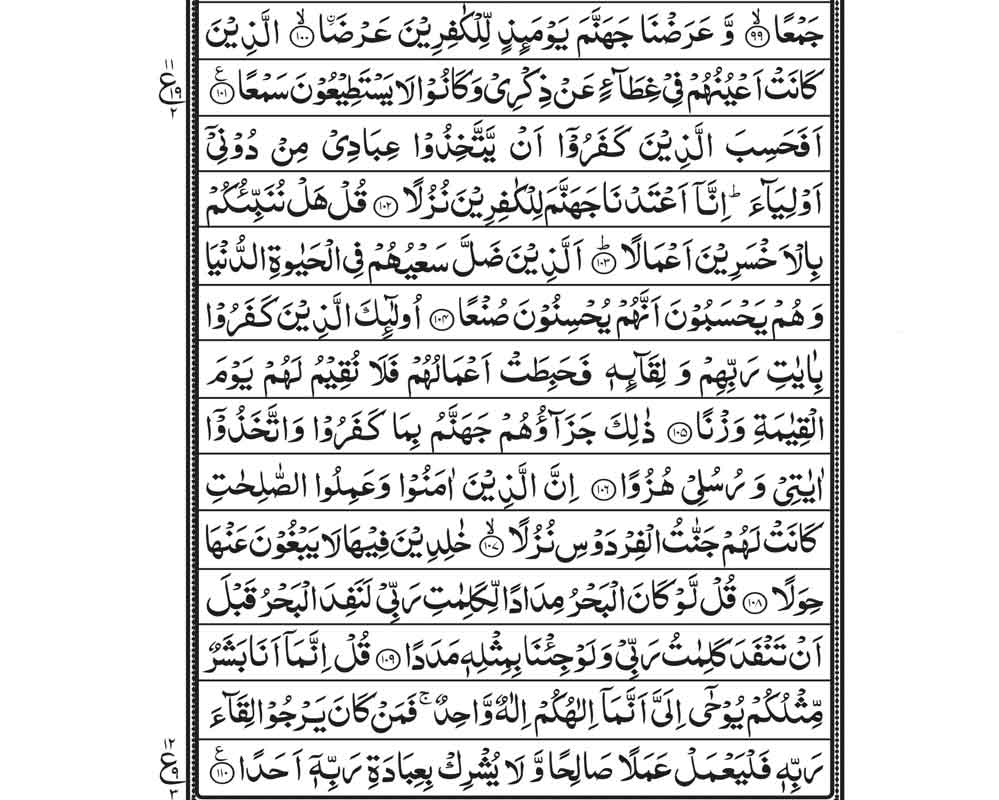 جَمۡعًا ۙ‏﴿۹۹﴾ وَّ عَرَضۡنَا جَهَنَّمَ يَوۡمَئِذٍ لِّلۡكٰفِرِيۡنَ عَرۡضَا ۙ‏﴿۱۰۰﴾ اۨلَّذِيۡنَ
كَانَتۡ اَعۡيُنُهُمۡ فِىۡ غِطَآءٍ عَنۡ ذِكۡرِىۡ وَكَانُوۡا لَا يَسۡتَطِيۡعُوۡنَ سَمۡعًا ﴿۱۰۱﴾ ع
۱۱ ع ۱۹ ۲
اَفَحَسِبَ الَّذِيۡنَ كَفَرُوۡۤا اَنۡ يَّتَّخِذُوۡا عِبَادِىۡ مِنۡ دُوۡنِىۡۤ
اَوۡلِيَآءَ‌ ؕ اِنَّاۤ اَعۡتَدۡنَا جَهَنَّمَ لِلۡكٰفِرِيۡنَ نُزُلًا‏ ﴿۱۰۲﴾ قُلۡ هَلۡ نُنَبِّئُكُمۡ
بِالۡاَخۡسَرِيۡنَ اَعۡمَالًا ؕ‏ ﴿۱۰۳﴾ اَلَّذِيۡنَ ضَلَّ سَعۡيُهُمۡ فِى الۡحَيٰوةِ الدُّنۡيَا
وَهُمۡ يَحۡسَبُوۡنَ اَنَّهُمۡ يُحۡسِنُوۡنَ صُنۡعًا‏ ﴿۱۰۴﴾ اُولٰٓئِكَ الَّذِيۡنَ كَفَرُوۡا
بِاٰيٰتِ رَبِّهِمۡ وَ لِقَآئِهٖ فَحَبِطَتۡ اَعۡمَالُهُمۡ فَلَا نُقِيۡمُ لَهُمۡ يَوۡمَ
الۡقِيٰمَةِ وَزۡنًـا‏ ﴿۱۰۵﴾ ذٰلِكَ جَزَآؤُهُمۡ جَهَنَّمُ بِمَا كَفَرُوۡا وَاتَّخَذُوۡۤا
اٰيٰتِىۡ وَ رُسُلِىۡ هُزُوًا‏ ﴿۱۰۶﴾ اِنَّ الَّذِيۡنَ اٰمَنُوۡا وَعَمِلُوا الصّٰلِحٰتِ
كَانَتۡ لَهُمۡ جَنّٰتُ الۡفِرۡدَوۡسِ نُزُلًا ۙ‏ ﴿۱۰۷﴾ خٰلِدِيۡنَ فِيۡهَا لَا يَبۡغُوۡنَ عَنۡهَا
حِوَلًا‏ ﴿۱۰۸﴾ قُلۡ لَّوۡ كَانَ الۡبَحۡرُ مِدَادًا لِّكَلِمٰتِ رَبِّىۡ لَنَفِدَ الۡبَحۡرُ قَبۡلَ
اَنۡ تَنۡفَدَ كَلِمٰتُ رَبِّىۡ وَلَوۡ جِئۡنَا بِمِثۡلِهٖ مَدَدًا‏ ﴿۱۰۹﴾ قُلۡ اِنَّمَاۤ اَنَا بَشَرٌ
مِّثۡلُكُمۡ يُوۡحٰٓى اِلَىَّ اَنَّمَاۤ اِلٰهُكُمۡ اِلٰـهٌ وَّاحِدٌ‌ ۚ فَمَنۡ كَانَ يَرۡجُوۡا لِقَآءَ
رَبِّهٖ فَلۡيَـعۡمَلۡ عَمَلًا صَالِحًـا وَّ لَا يُشۡرِكۡ بِعِبَادَةِ رَبِّهٖۤ اَحَدًا ﴿۱۱۰﴾ ع
۱۲ ع ۹ ۳